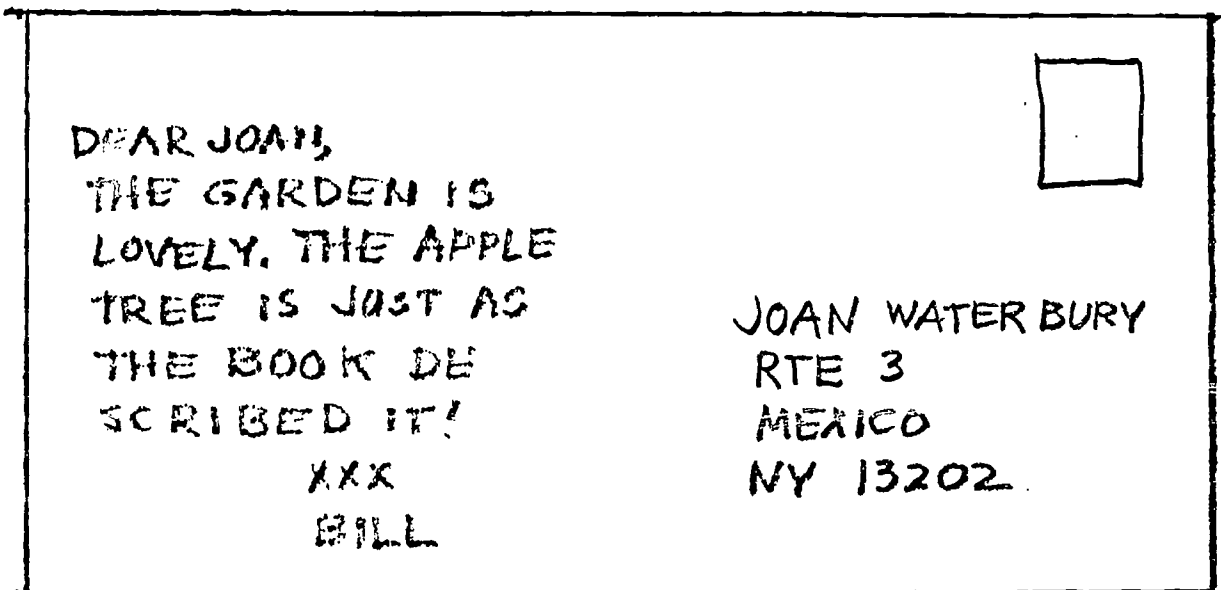 DEAR JOAN,
THE GARDEN IS
LOVELY. THE APPLE
TREE IS JUST AS
THE BOOK DE
SCRIBED IT!
XXX
BILL
JOAN WATERBURY
RTE 3
MEXICO
NY 13202